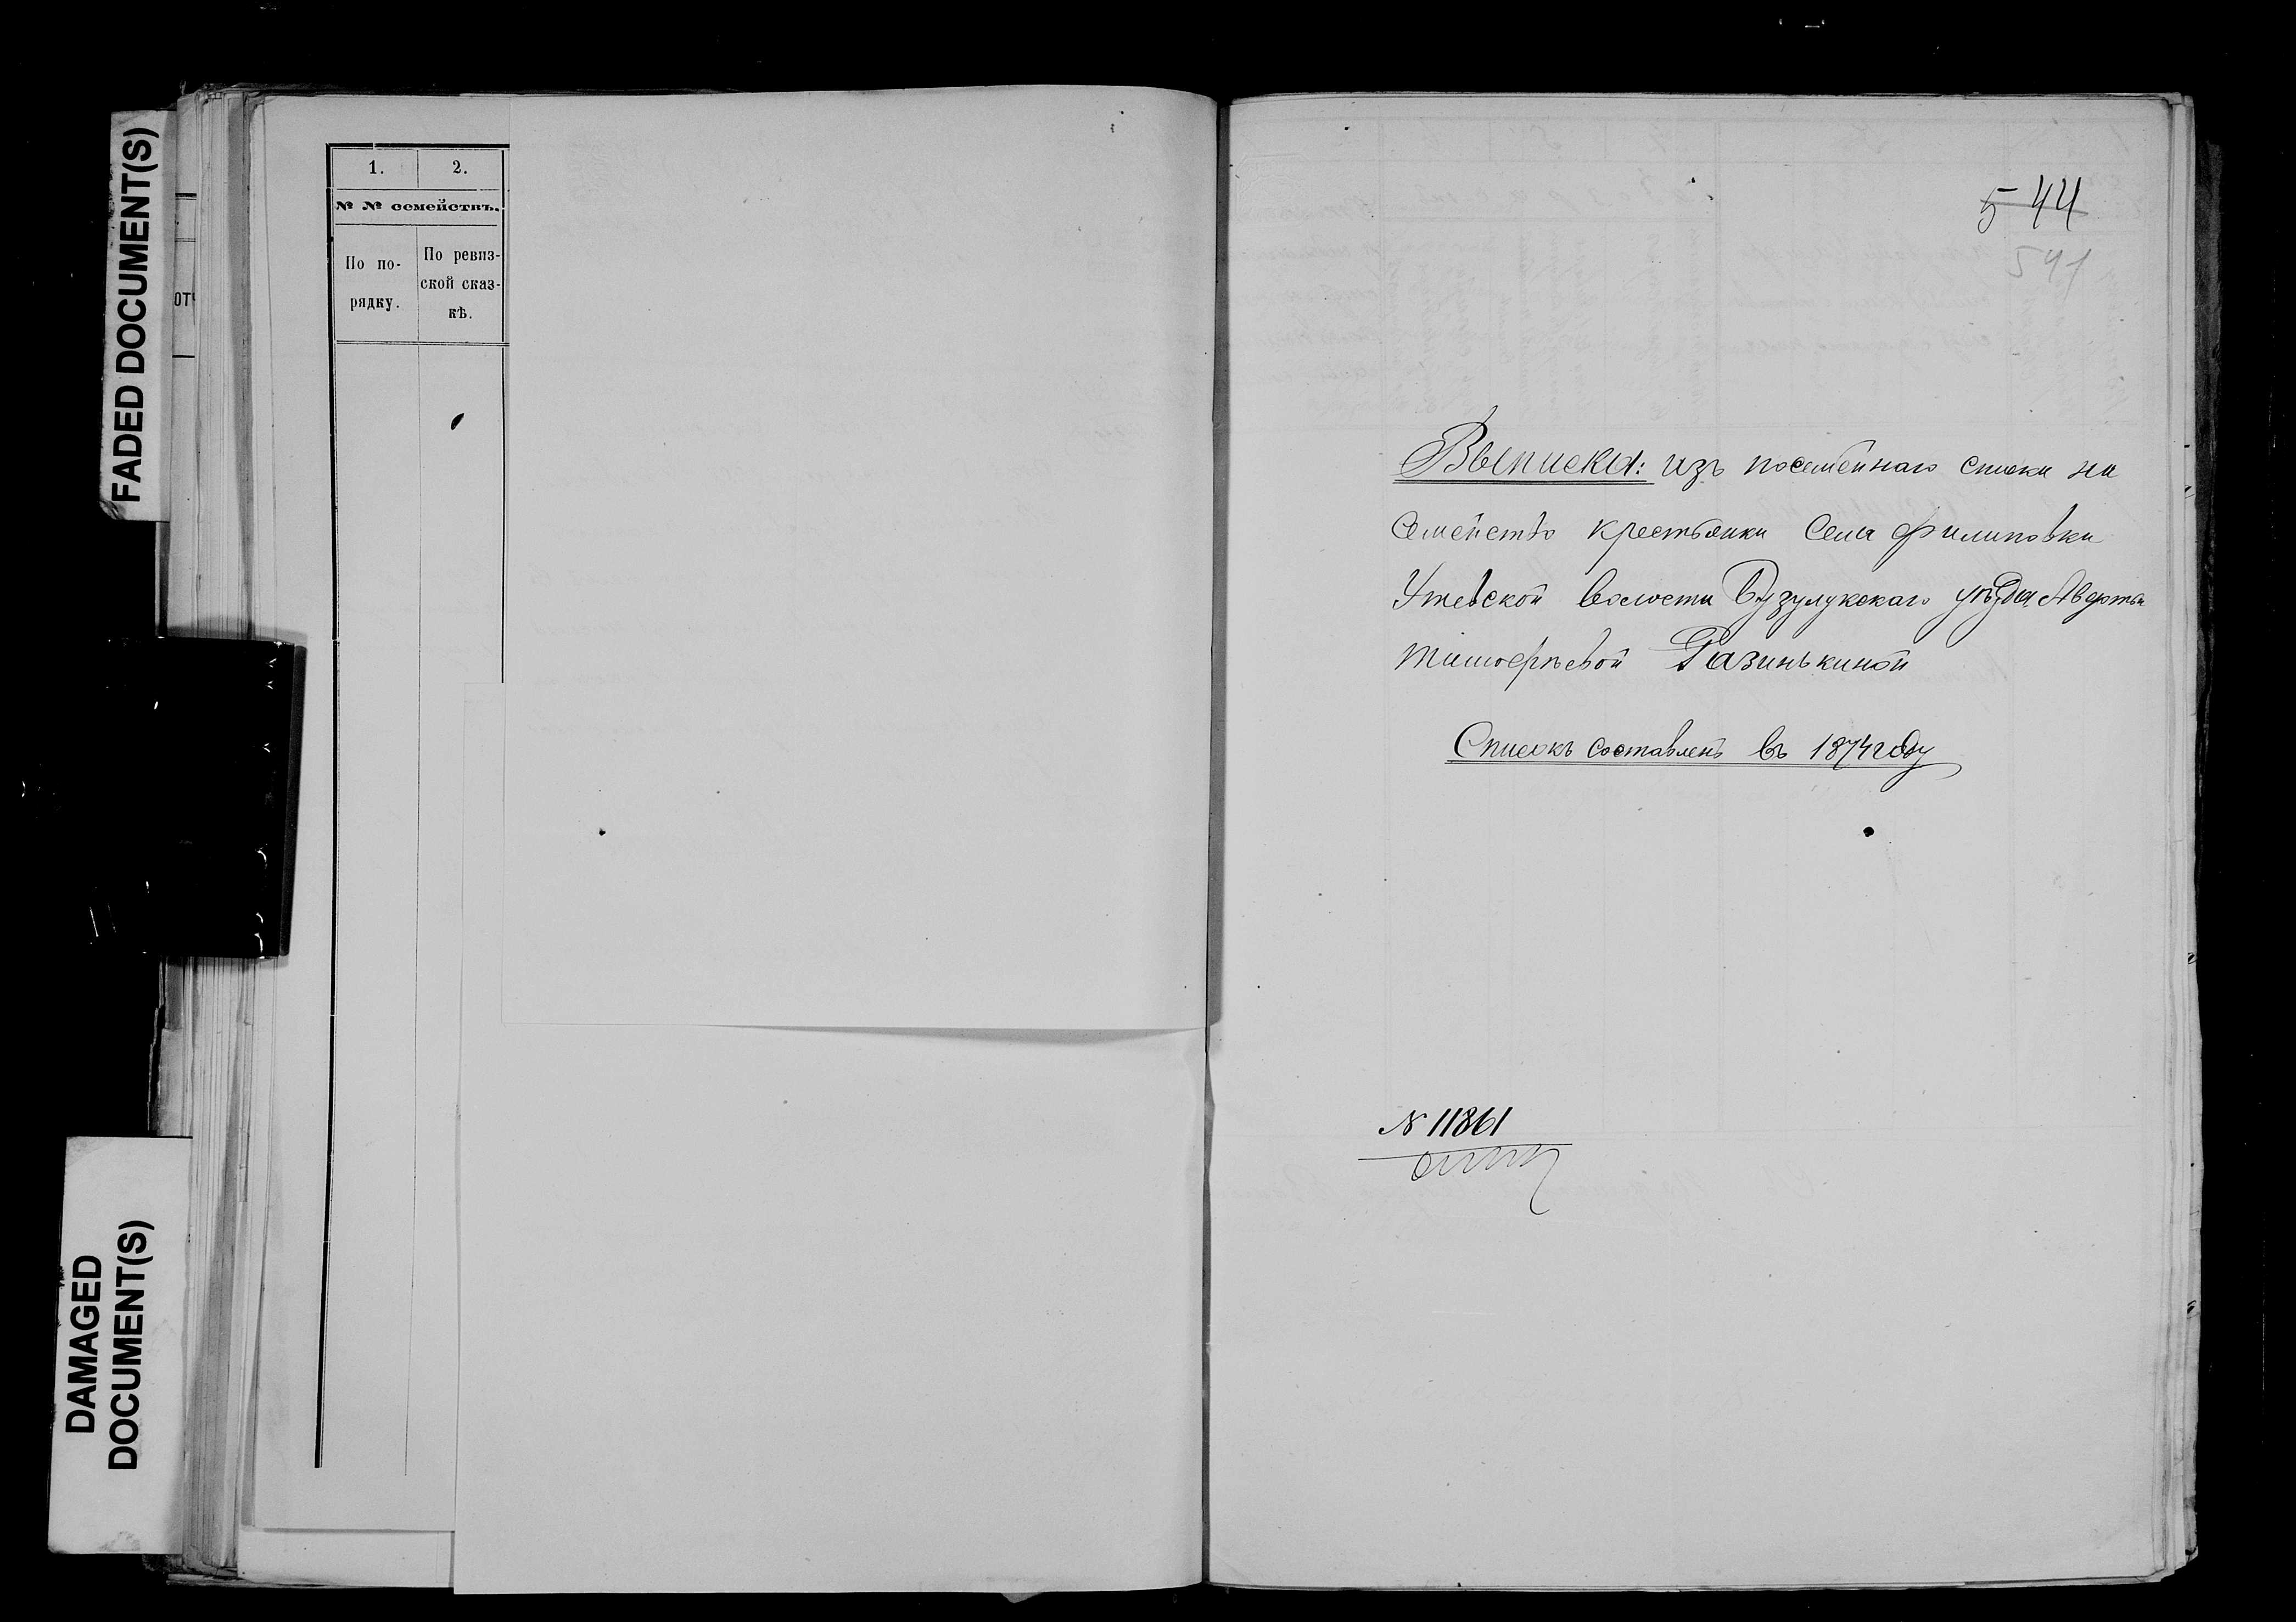 FADED DOCUMENT(S)
DAMAGED
DOCUMENT(S)
1. 2.
№ № семействъ.
По по-
рядку.
По ревиз-
ской сказ-
кѣ.
544
541
Выписка: изъ посемейнаго списка на
Семейство крестьянки Села Филиповки
Утевской волости Бузулукскаго уѣзда Авдотьи
Тимофѣевой Разинькиной
Списокъ составленъ въ 1874 году
№ 11861